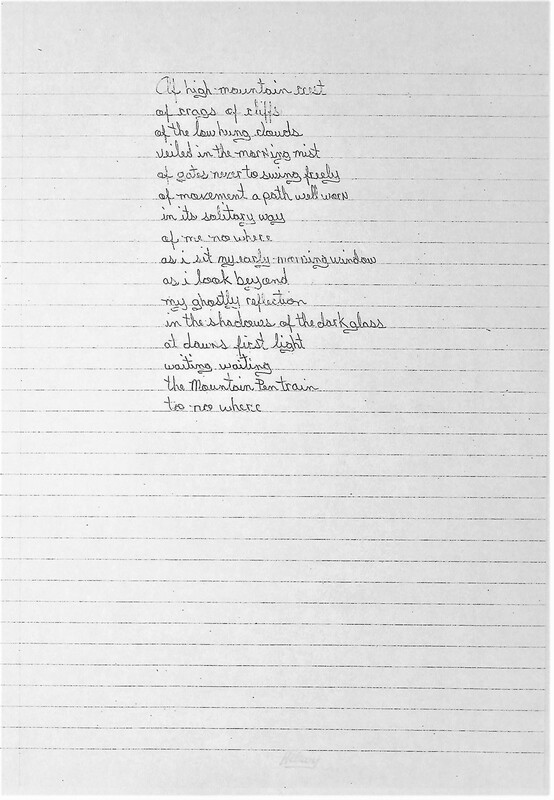 Of high mountain crest
of crags of cliffs
of the low hung clouds
veiled in the morning mist
of gates never to swing freely
of movement a path well worn
in its solitary way
of me no where
as i sit my early-morning window
as i look beyond
my ghostly reflection
in the shadows of the dark glass
at dawns first light
waiting waiting
the Mountain Pen train
to no where